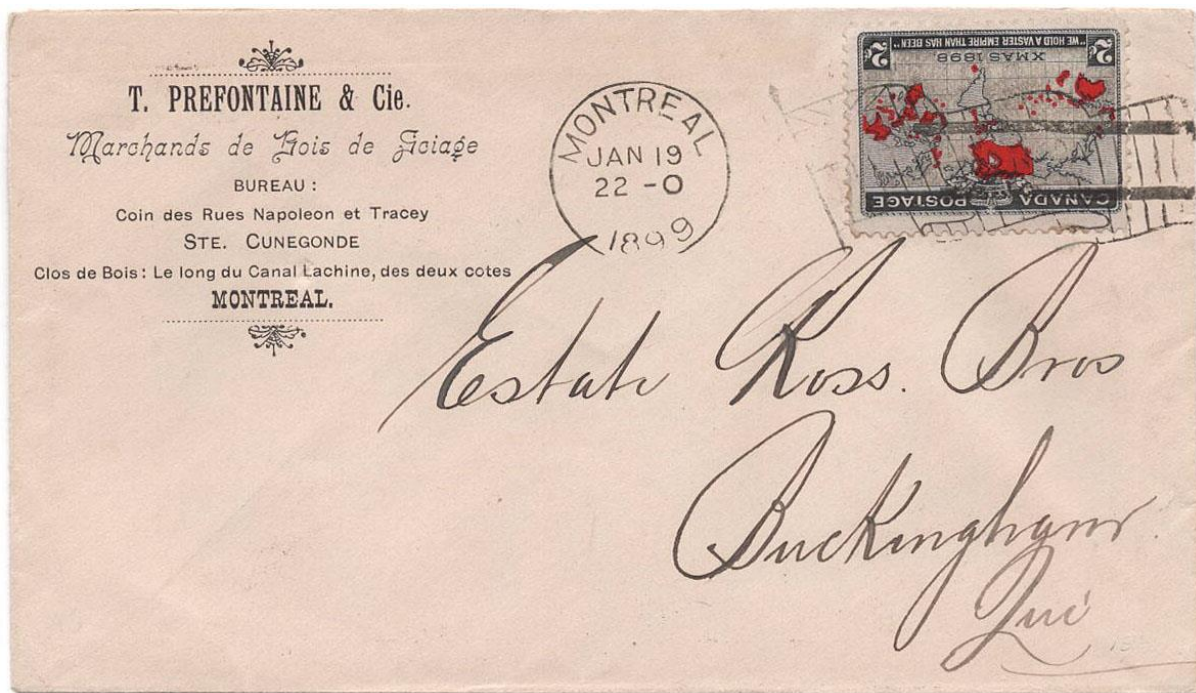 T. PREFONTAINE & Cie.
Marchands de Bois de Sciage
BUREAU :
Coin des Rues Napoleon et Tracey
STE. CUNEGONDE
Clos de Bois : Le long du Canal Lachine, des deux cotes
MONTREAL.
MONTREAL
JAN 19
22 - 0
1899
CANADA POSTAGE
XMAS 1898
"WE HOLD A VASTER EMPIRE THAN HAS BEEN"
2c 2c
Estate Ross. Bros
Buckingham
Que